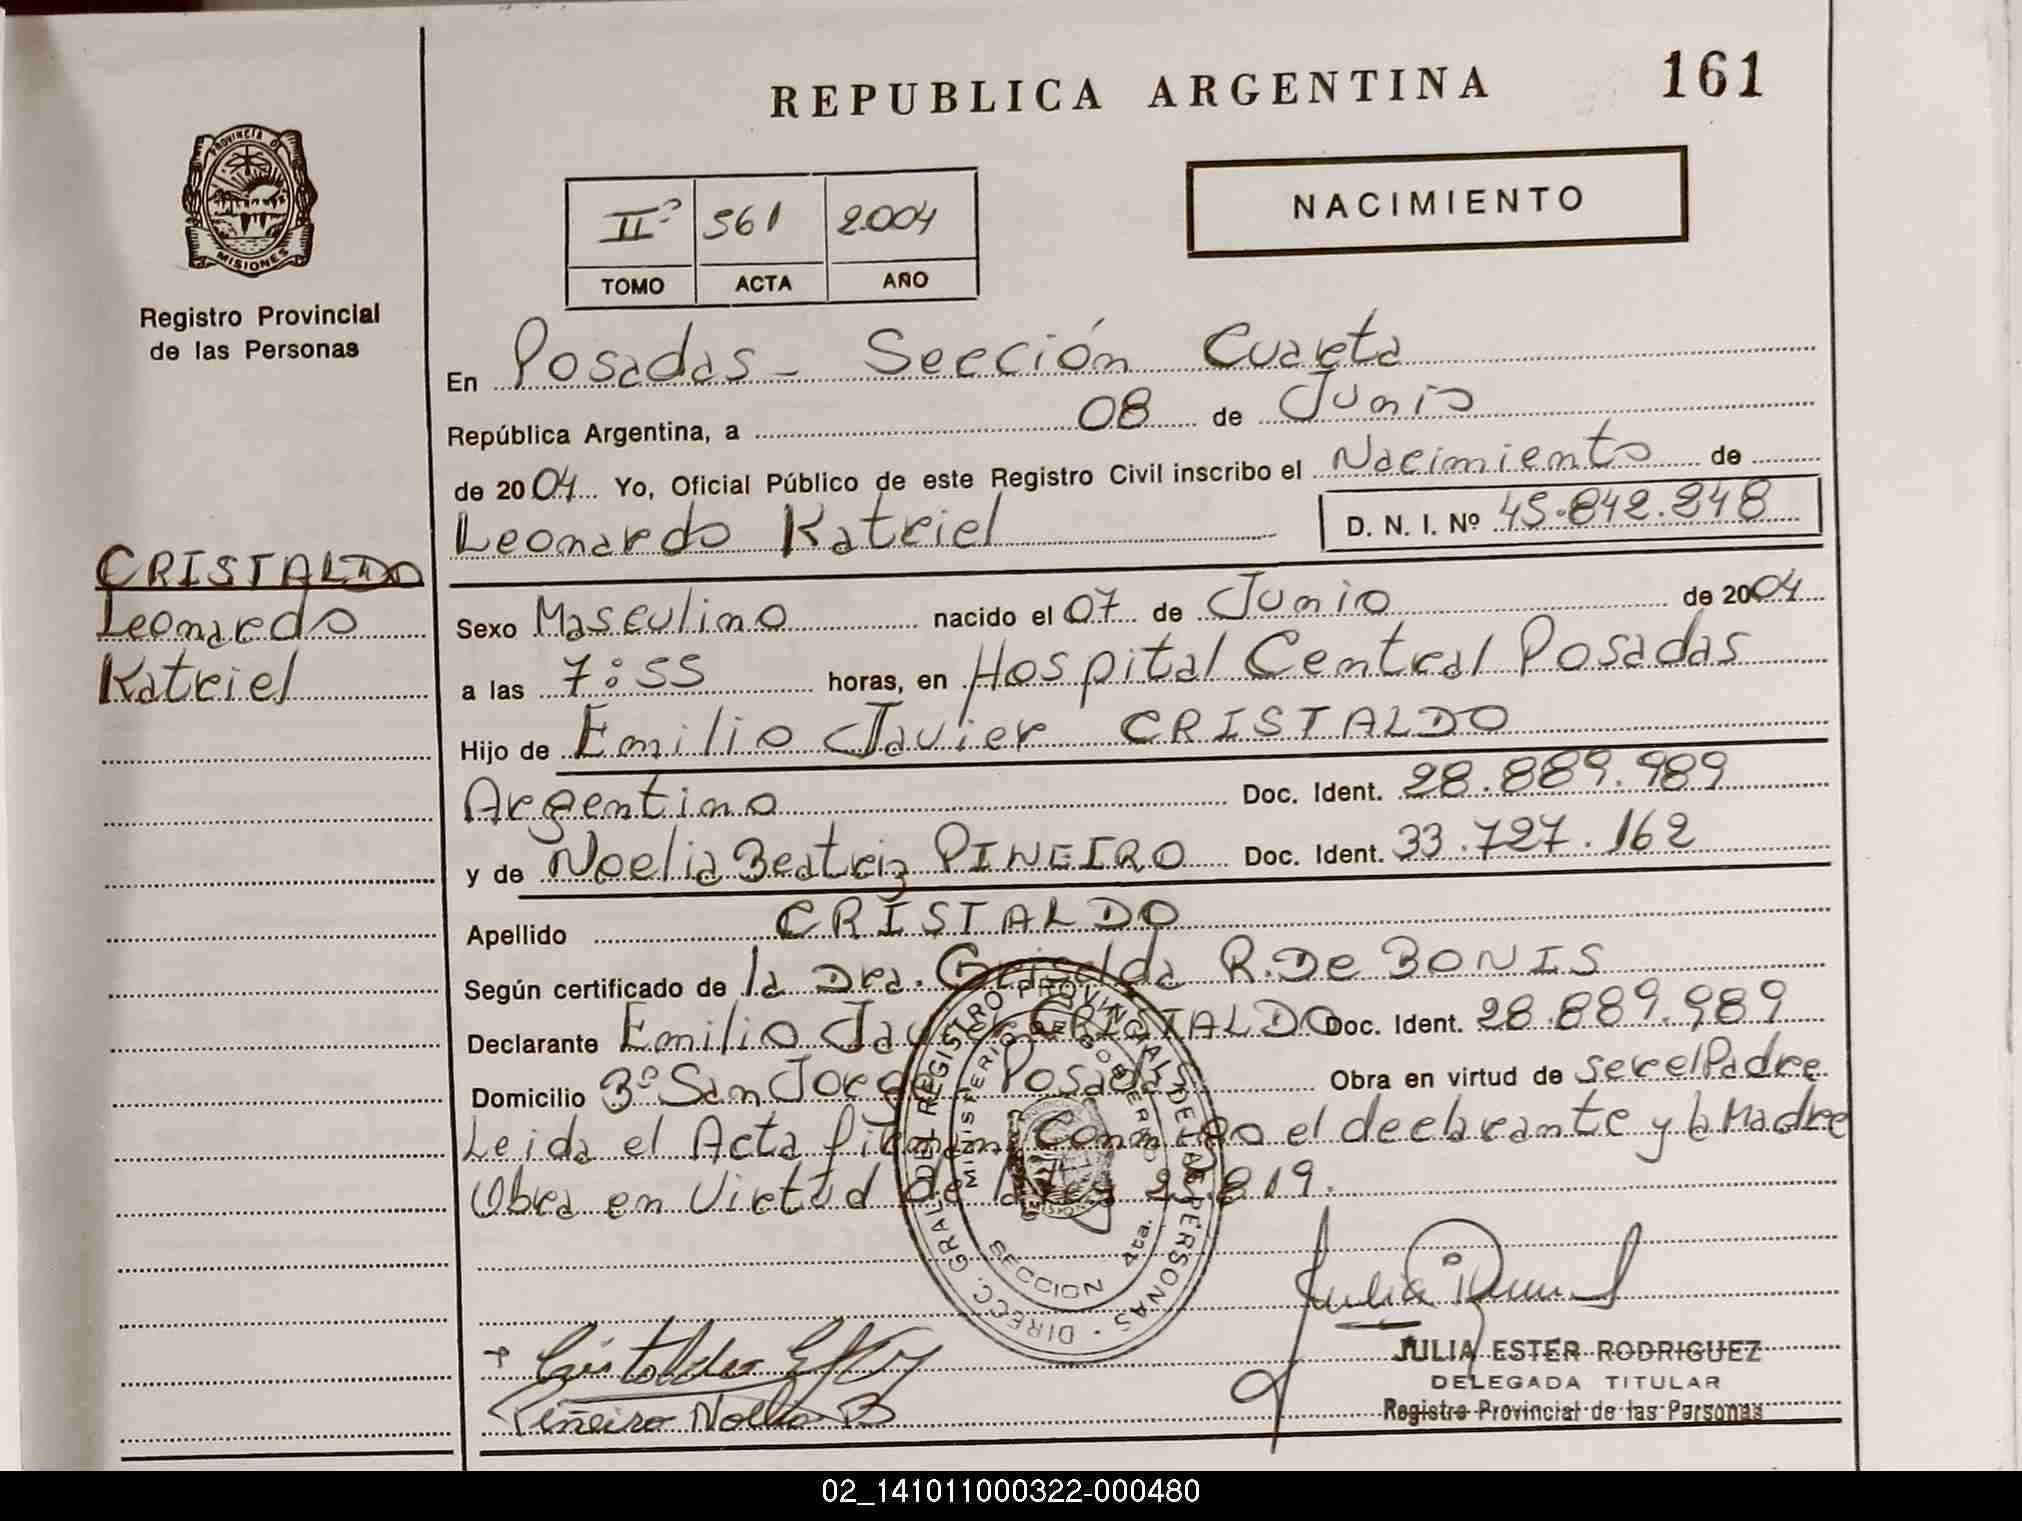 REPUBLICA ARGENTINA
161
PROVINCIA DE
MISIONES
Registro Provincial
de las Personas
IIº 561 2.004
TOMO ACTA AÑO
NACIMIENTO
En Posadas - Sección Cuarta
República Argentina, a 08 de Junio
de 2004 Yo, Oficial Público de este Registro Civil inscribo el Nacimiento de
Leonardo Katriel D. N. I. Nº 45.842.248
CRISTALDO
Leonardo
Katriel
Sexo Masculino nacido el 07 de Junio de 2004
a las 7:55 horas, en Hospital Central Posadas
Hijo de Emilio Javier CRISTALDO
Argentino Doc. Ident. 28.889.989
y de Noelia Beatriz PIÑEIRO Doc. Ident. 33.727.162
Apellido CRISTALDO
Según certificado de la Dra. Griselda R. De BONIS
Declarante Emilio Javier CRISTALDO Doc. Ident. 28.889.989
Domicilio Bº San Jorge Posadas Obra en virtud de ser el Padre
Leida el Acta firman Conmigo el declarante y la Madre
Obra en Virtud de la Ley 819.
DIRECC. GRAL. DEL REGISTRO PROVINCIAL DE LAS PERSONAS
MINISTERIO DE GOBIERNO
SECCION 4ta.
Cristaldo
Piñeiro Noelia B
JULIA ESTER RODRIGUEZ
DELEGADA TITULAR
Registro Provincial de las Personas
02_141011000322-000480